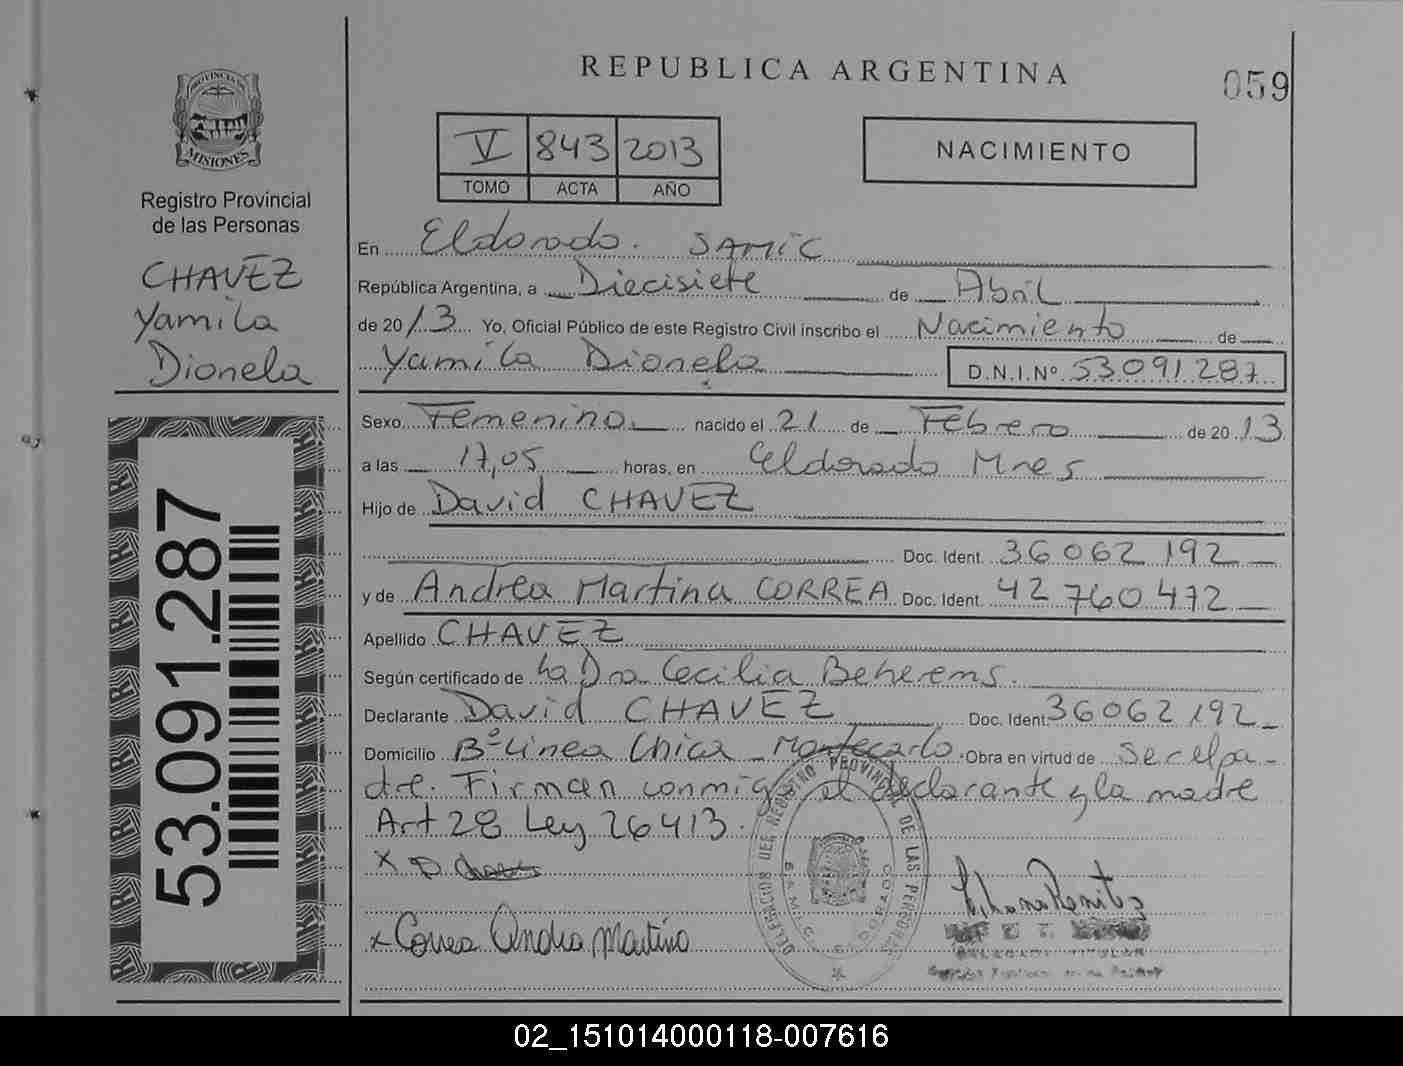 REPUBLICA ARGENTINA
059
PROVINCIA DE MISIONES
Registro Provincial
de las Personas
CHAVEZ
Yamila
Dionela
53.091.287
V 843 2013
TOMO ACTA AÑO
NACIMIENTO
En Eldorado. SAMIC
República Argentina, a Diecisiete de Abril
de 2013 Yo, Oficial Público de este Registro Civil inscribo el Nacimiento de
Yamila Dionela D.N.I.Nº 53091287
Sexo Femenino nacido el 21 de Febrero de 2013
a las 17,05 horas, en Eldorado Mnes
Hijo de David CHAVEZ
Doc. Ident. 36062192
y de Andrea Martina CORREA Doc. Ident. 42760472
Apellido CHAVEZ
Según certificado de la Dra Cecilia Beherens.
Declarante David CHAVEZ Doc. Ident. 36062192
Domicilio Bº Linea Chica Montecarlo. Obra en virtud de Ser el pa-
dre. Firman conmigo el declarante y la madre
Art 28 Ley 26413.
x D Chaves
x Correa Andrea Martina
DELEGACION DEL REGISTRO PROVINCIAL DE LAS PERSONAS
S.A.M.I.C. ELDORADO
02_151014000118-007616